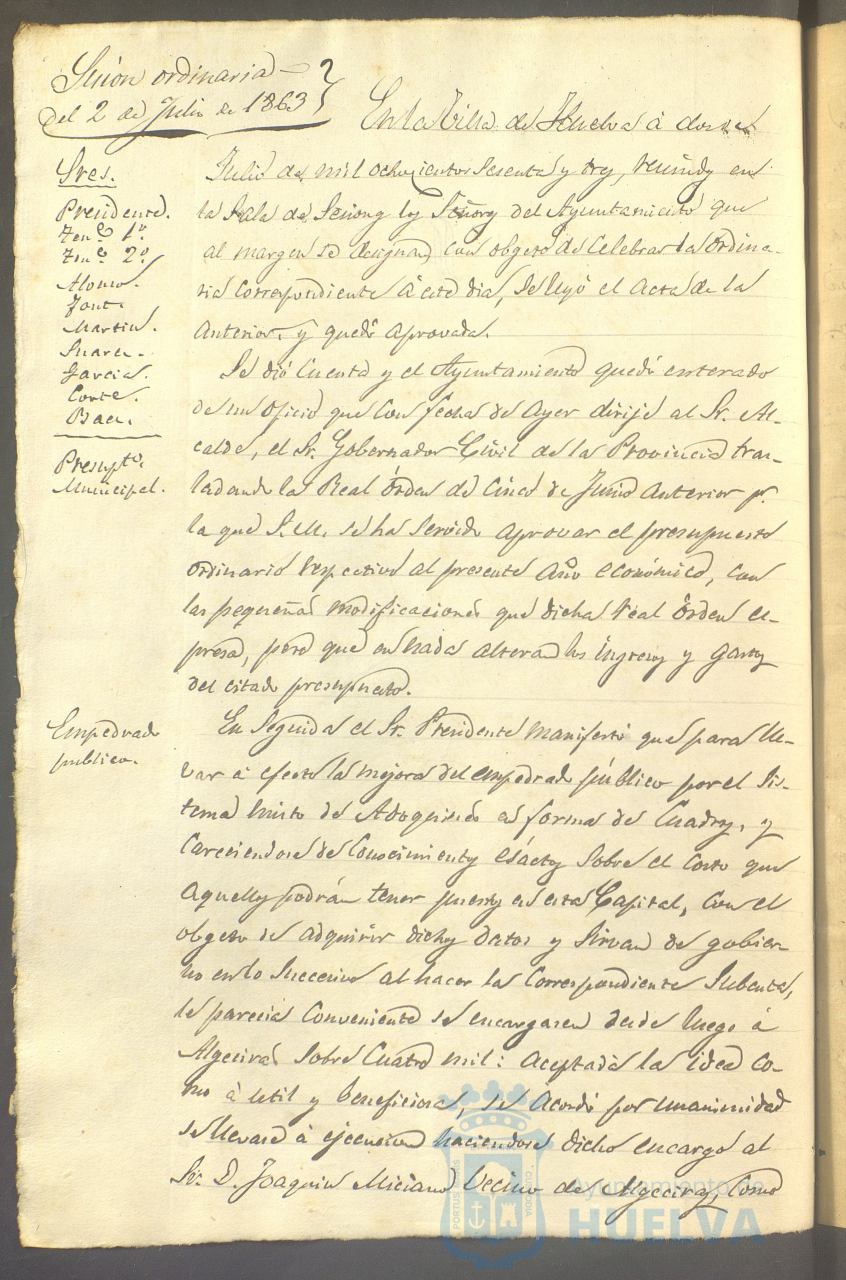 Sesion ordinaria
del 2 de Julio de 1863
En la Villa de Huelva à dos de
Sres.
Presidente.
Tente. 1º.
Tente. 2º.
Alonso.
Font.
Martin.
Suarez.
Garcia.
Corte.
Baez.
Julio de mil ochocientos sesenta y tres, reunidos en
la Sala de Sesiones los Señores del Ayuntamiento que
al margen se designan con obgeto de celebrar la ordina-
ria correspondiente à este dia, se leyó el Acta de la
anterior, y quedó aprovada.
Presupto.
Municipal.
Se dió cuenta y el Ayuntamiento quedó enterado
de un oficio que con fecha de ayer dirije al Sr. Al-
calde, el Sr. Gobernador Civil de la Provincia tras-
ladando la Real òrden de cinco de Junio anterior pr.
la que S.M. se ha servido aprovar el presupuesto
ordinario respectivo al presente año económico, con
las pequeñas modificaciones que dicha real òrden es-
presa, pero que en nada alteran los ingresos y gastos
del citado presupuesto.
Empedrado
publico.
En seguida el Sr. Presidente manifestó que para lle-
var à efecto la mejora del empedrado público por el sis-
tema misto de Adoquines en forma de Cuadros, y
careciendose de conocimientos esáctos sobre el costo que
aquellos podrán tener puestos en esta Capital, con el
obgeto de adquirir dichos datos y sirvan de gobier-
no en lo succesivo al hacer la correspondiente Subasta,
le parecia conveniente se encargasen desde luego à
Algeciras sobre cuatro mil: aceptada la idea co-
mo à util y beneficiosa, se acordó por unanimidad
se llevase à ejecucion haciendose dicho encargo al
Sr. D. Joaquin Miciano vecino de Algeciras, como
PORTUS
CUSTODIA
Ayuntamiento de
HUELVA